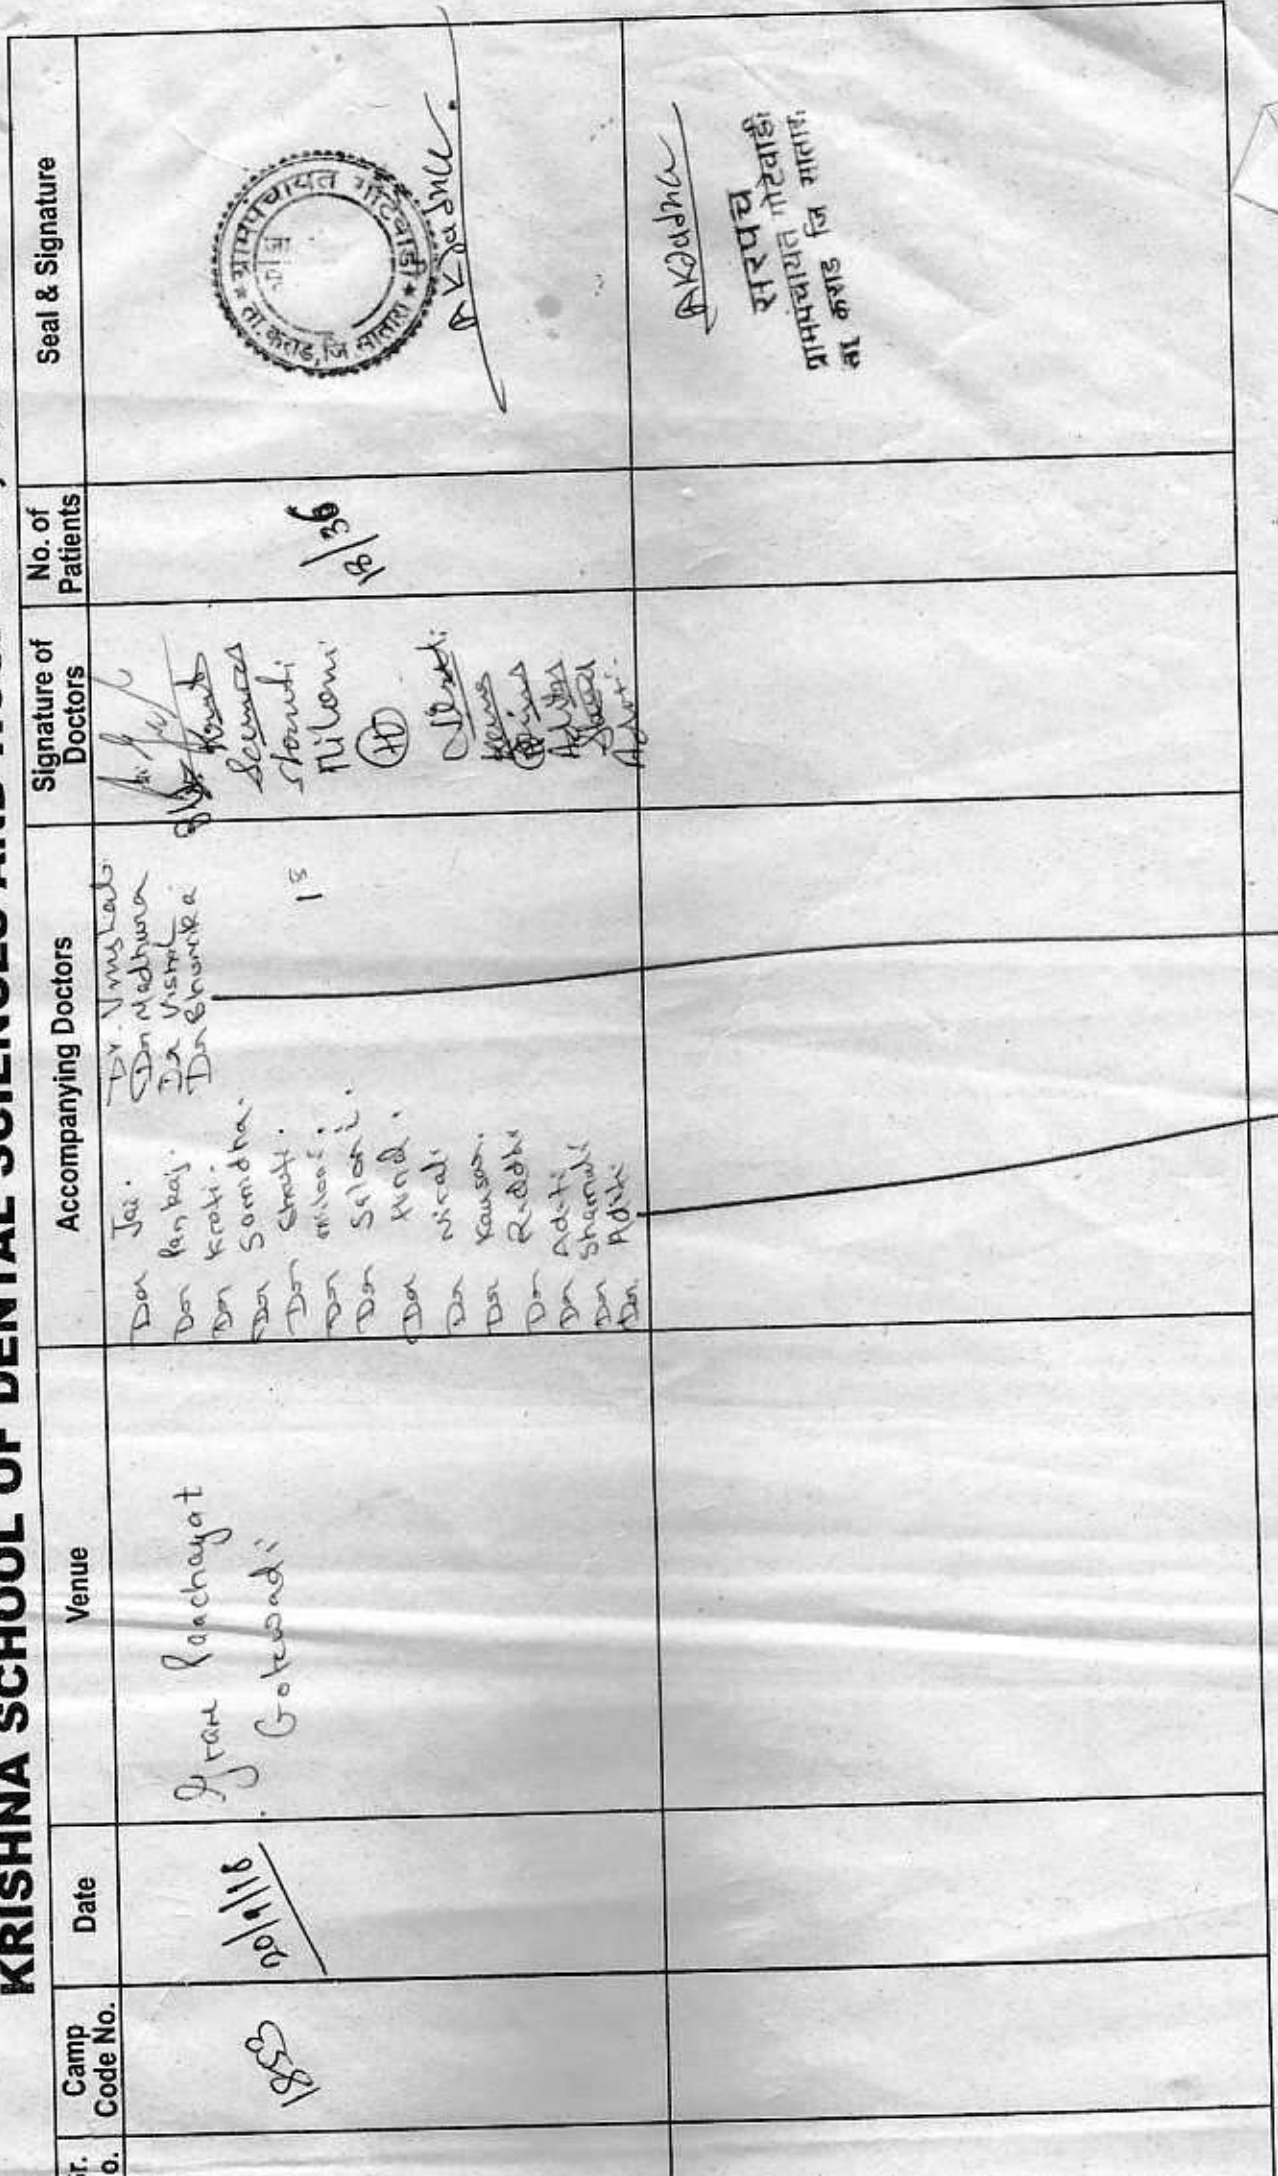 KRISHNA SCHOOL OF DENTAL SCIENCES AND
Camp
Code No.
Date
Venue
Accompanying Doctors
Signature of
Doctors
No. of
Patients
Seal & Signature
1853
20/9/18
Gram Panchayat
Gotewadi
Dr Jai.
Dr Pankaj.
Dr Krati.
Dr Samidha.
Dr Shruti.
Dr Miloni.
Dr Saloni.
Dr Hinal.
Dr Nirali
Dr Kausar.
Dr Riddhi
Dr Aditi
Dr Shamali
Dr. Aditi
Dr. Vrushali
Dr Madhura
Dr Vishal
Dr Bhumika
18
Shruti
Miloni
HD
Nirali
Aditi
18/36
ग्रामपंचायत गोटेवाडी
ता. कराड, जि. सातारा
AKJadhav
AKJadhav
सरपंच
ग्रामपंचायत गोटेवाडी
ता कराड जि सातारा